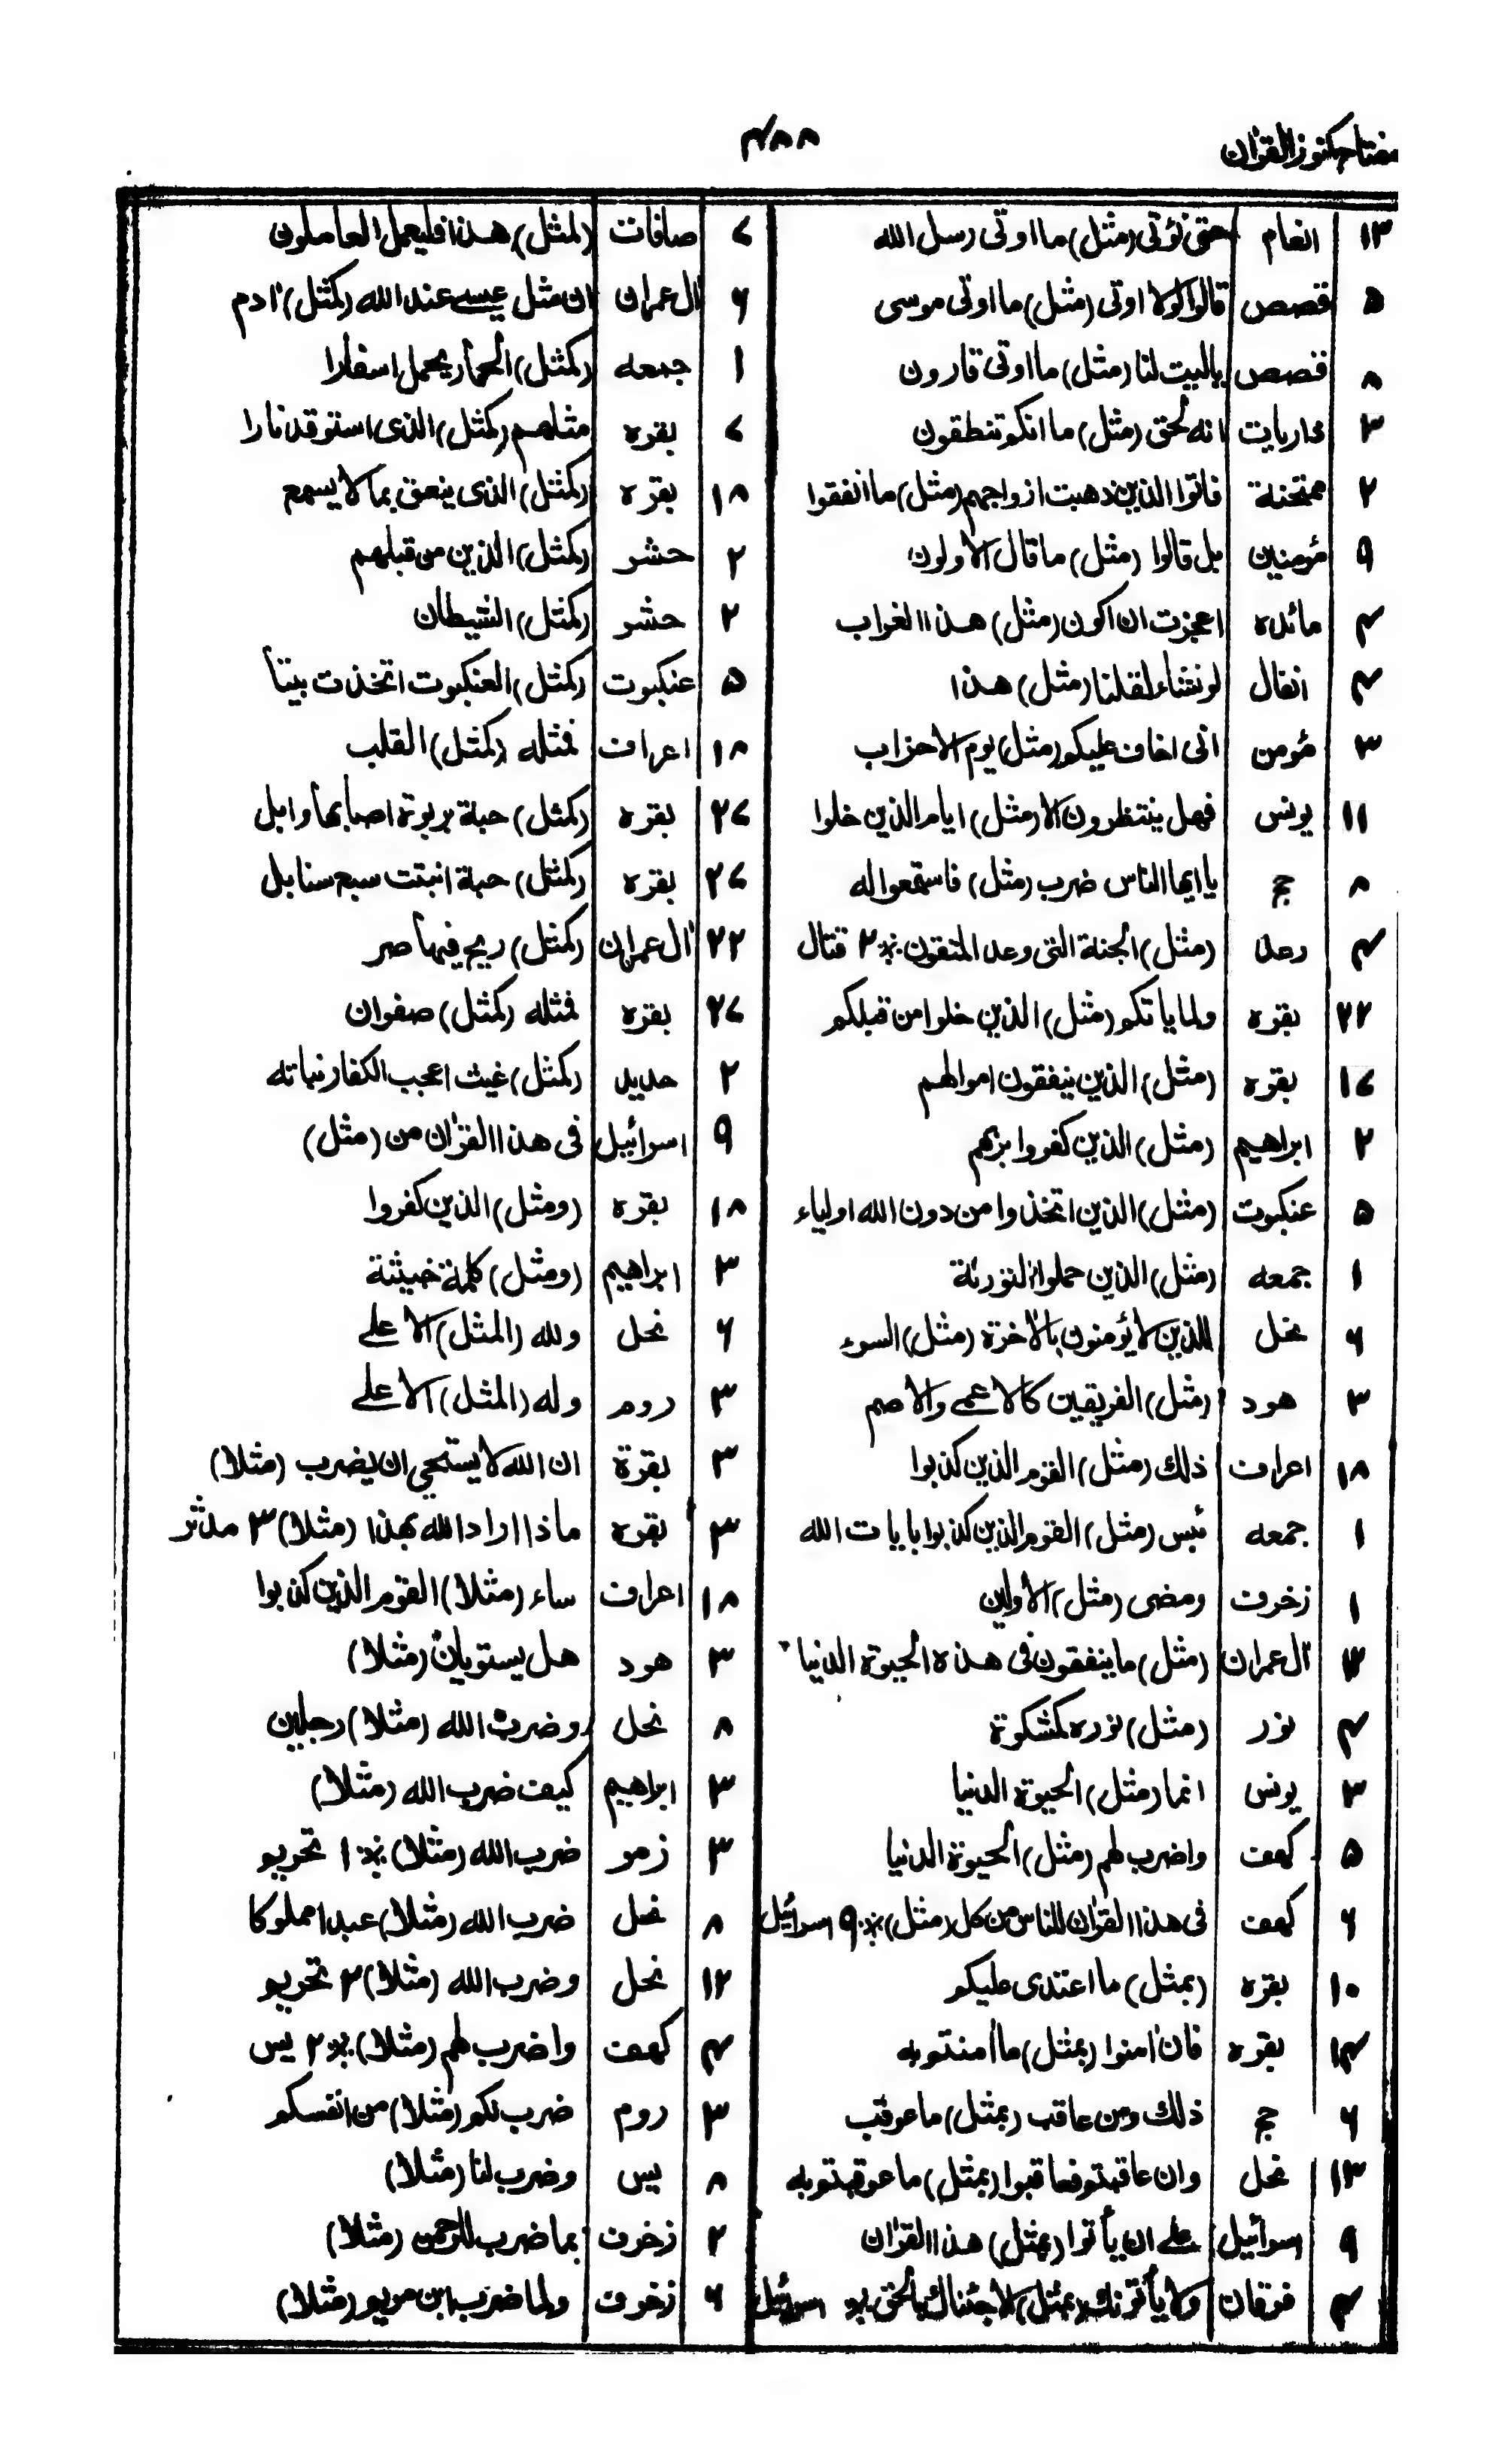 مفتاح كنوز القرآن
۴۸۸
۱۳ انعام حتى نؤتى (مثل) ما اوتى رسل الله
۵ قصص قالوا لولا اوتى (مثل) ما اوتى موسى
۸ قصص ياليت لنا (مثل) ما اوتى قارون
۳ ذاريات انه لحق (مثل) ما انكم تنطقون
۲ ممتحنة فاتوا الذين ذهبت ازواجهم (مثل) ما انفقوا
۹ مؤمنين بل قالوا (مثل) ما قال الاولون
۴ مائده اعجزت ان اكون (مثل) هذا الغراب
۴ انفال لو نشاء لقلنا (مثل) هذا
۳ مؤمن انى اخاف عليكم (مثل) يوم الاحزاب
۱۱ يونس فهل ينتظرون الا (مثل) ايام الذين خلوا
۸ حج يا ايها الناس ضرب (مثل) فاستمعوا له
۴ رعد (مثل) الجنة التى وعد المتقون ٪ ۲ قتال
۲۲ بقره ولما ياتكم (مثل) الذين خلوا من قبلكم
۱۶ بقره (مثل) الذين ينفقون اموالهم
۲ ابراهيم (مثل) الذين كفروا بربهم
۵ عنكبوت (مثل) الذين اتخذوا من دون الله اولياء
۱ جمعه (مثل) الذين حملوا التورىة
۶ نحل للذين لا يؤمنون بالاخرة (مثل) السوء
۳ هود (مثل) الفريقين كالاعمى والاصم
۱۸ اعراف ذلك (مثل) القوم الذين كذبوا
۱ جمعه بئس (مثل) القوم الذين كذبوا بايات الله
۱ زخرف ومضى (مثل) الاولين
آل عمران (مثل) ما ينفقون فى هذه الحيوة الدنيا
۴ نور (مثل) نوره كمشكوة
۳ يونس انما (مثل) الحيوة الدنيا
۵ كهف واضرب لهم (مثل) الحيوة الدنيا
۶ كهف فى هذا القرآن للناس من كل (مثل) ٪ ۹ اسرائيل
۱۰ بقره (بمثل) ما اعتدى عليكم
۱۴ بقره فان آمنوا (بمثل) ما آمنتم به
۶ حج ذلك ومن عاقب (بمثل) ما عوقب
۱۳ نحل وان عاقبتم فعاقبوا (بمثل) ما عوقبتم به
۹ اسرائيل على ان يأتوا (بمثل) هذا القرآن
۴ فرقان ولا يأتونك (بمثل) الا جئناك بالحق اسرائيل
۷ صافات (لمثل) هذا فليعمل العاملون
۶ آل عمران ان مثل عيسى عند الله (كمثل) آدم
۱ جمعه (كمثل) الحمار يحمل اسفارا
۷ بقره مثلهم (كمثل) الذى استوقد نارا
۱۸ بقره (كمثل) الذى ينعق بما لا يسمع
۲ حشر (كمثل) الذين من قبلهم
۲ حشر (كمثل) الشيطان
۵ عنكبوت (كمثل) العنكبوت اتخذت بيتا
۱۸ اعراف فمثله (كمثل) القلب
۲۷ بقره (كمثل) حبة بربوة اصابها وابل
۲۷ بقره (كمثل) حبة انبتت سبع سنابل
۲۲ آل عمران (كمثل) ريح فيها صر
۲۷ بقره فمثله (كمثل) صفوان
۲ حديد (كمثل) غيث اعجب الكفار نباته
۹ اسرائيل فى هذا القرآن من (مثل)
۱۸ بقره (ومثل) الذين كفروا
۳ ابراهيم (ومثل) كلمة خبيثة
۶ نحل ولله (المثل) الاعلى
۳ روم وله (المثل) الاعلى
۳ بقرة ان الله لا يستحى ان يضرب (مثلا)
۳ بقره ماذا اراد الله بهذا (مثلا) ۳ مدثر
۱۸ اعراف ساء (مثلا) القوم الذين كذبوا
۳ هود هل يستويان (مثلا)
۸ نحل وضرب الله (مثلا) رجلين
۳ ابراهيم كيف ضرب الله (مثلا)
۳ زمر ضرب الله (مثلا) ٪ ۱ تحريم
۸ نحل ضرب الله (مثلا) عبدا مملوكا
۱۲ نحل وضرب الله (مثلا) ۲ تحريم
۴ كهف واضرب لهم (مثلا) ٪ ۲ يس
۳ روم ضرب لكم (مثلا) من انفسكم
۸ يس وضرب لنا (مثلا)
۲ زخرف بما ضرب للرحمن (مثلا)
۶ زخرف ولما ضرب ابن مريم (مثلا)